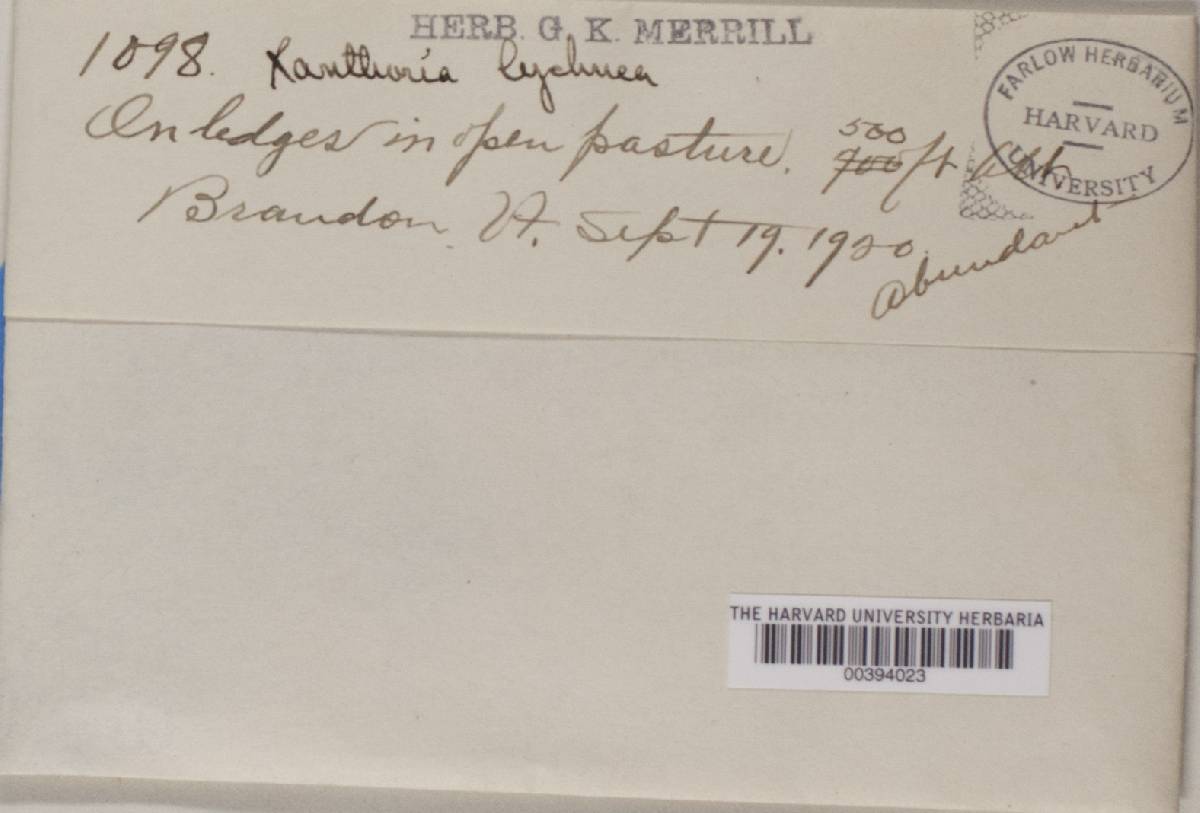 HERB. G. K. MERRILL
1098. Xanthoria lychnea
On ledges in open pasture. 500 ft Alt
Brandon Vt. Sept 19. 1920.
abundant
FARLOW HERBARIUM
HARVARD
UNIVERSITY
THE HARVARD UNIVERSITY HERBARIA
00394023